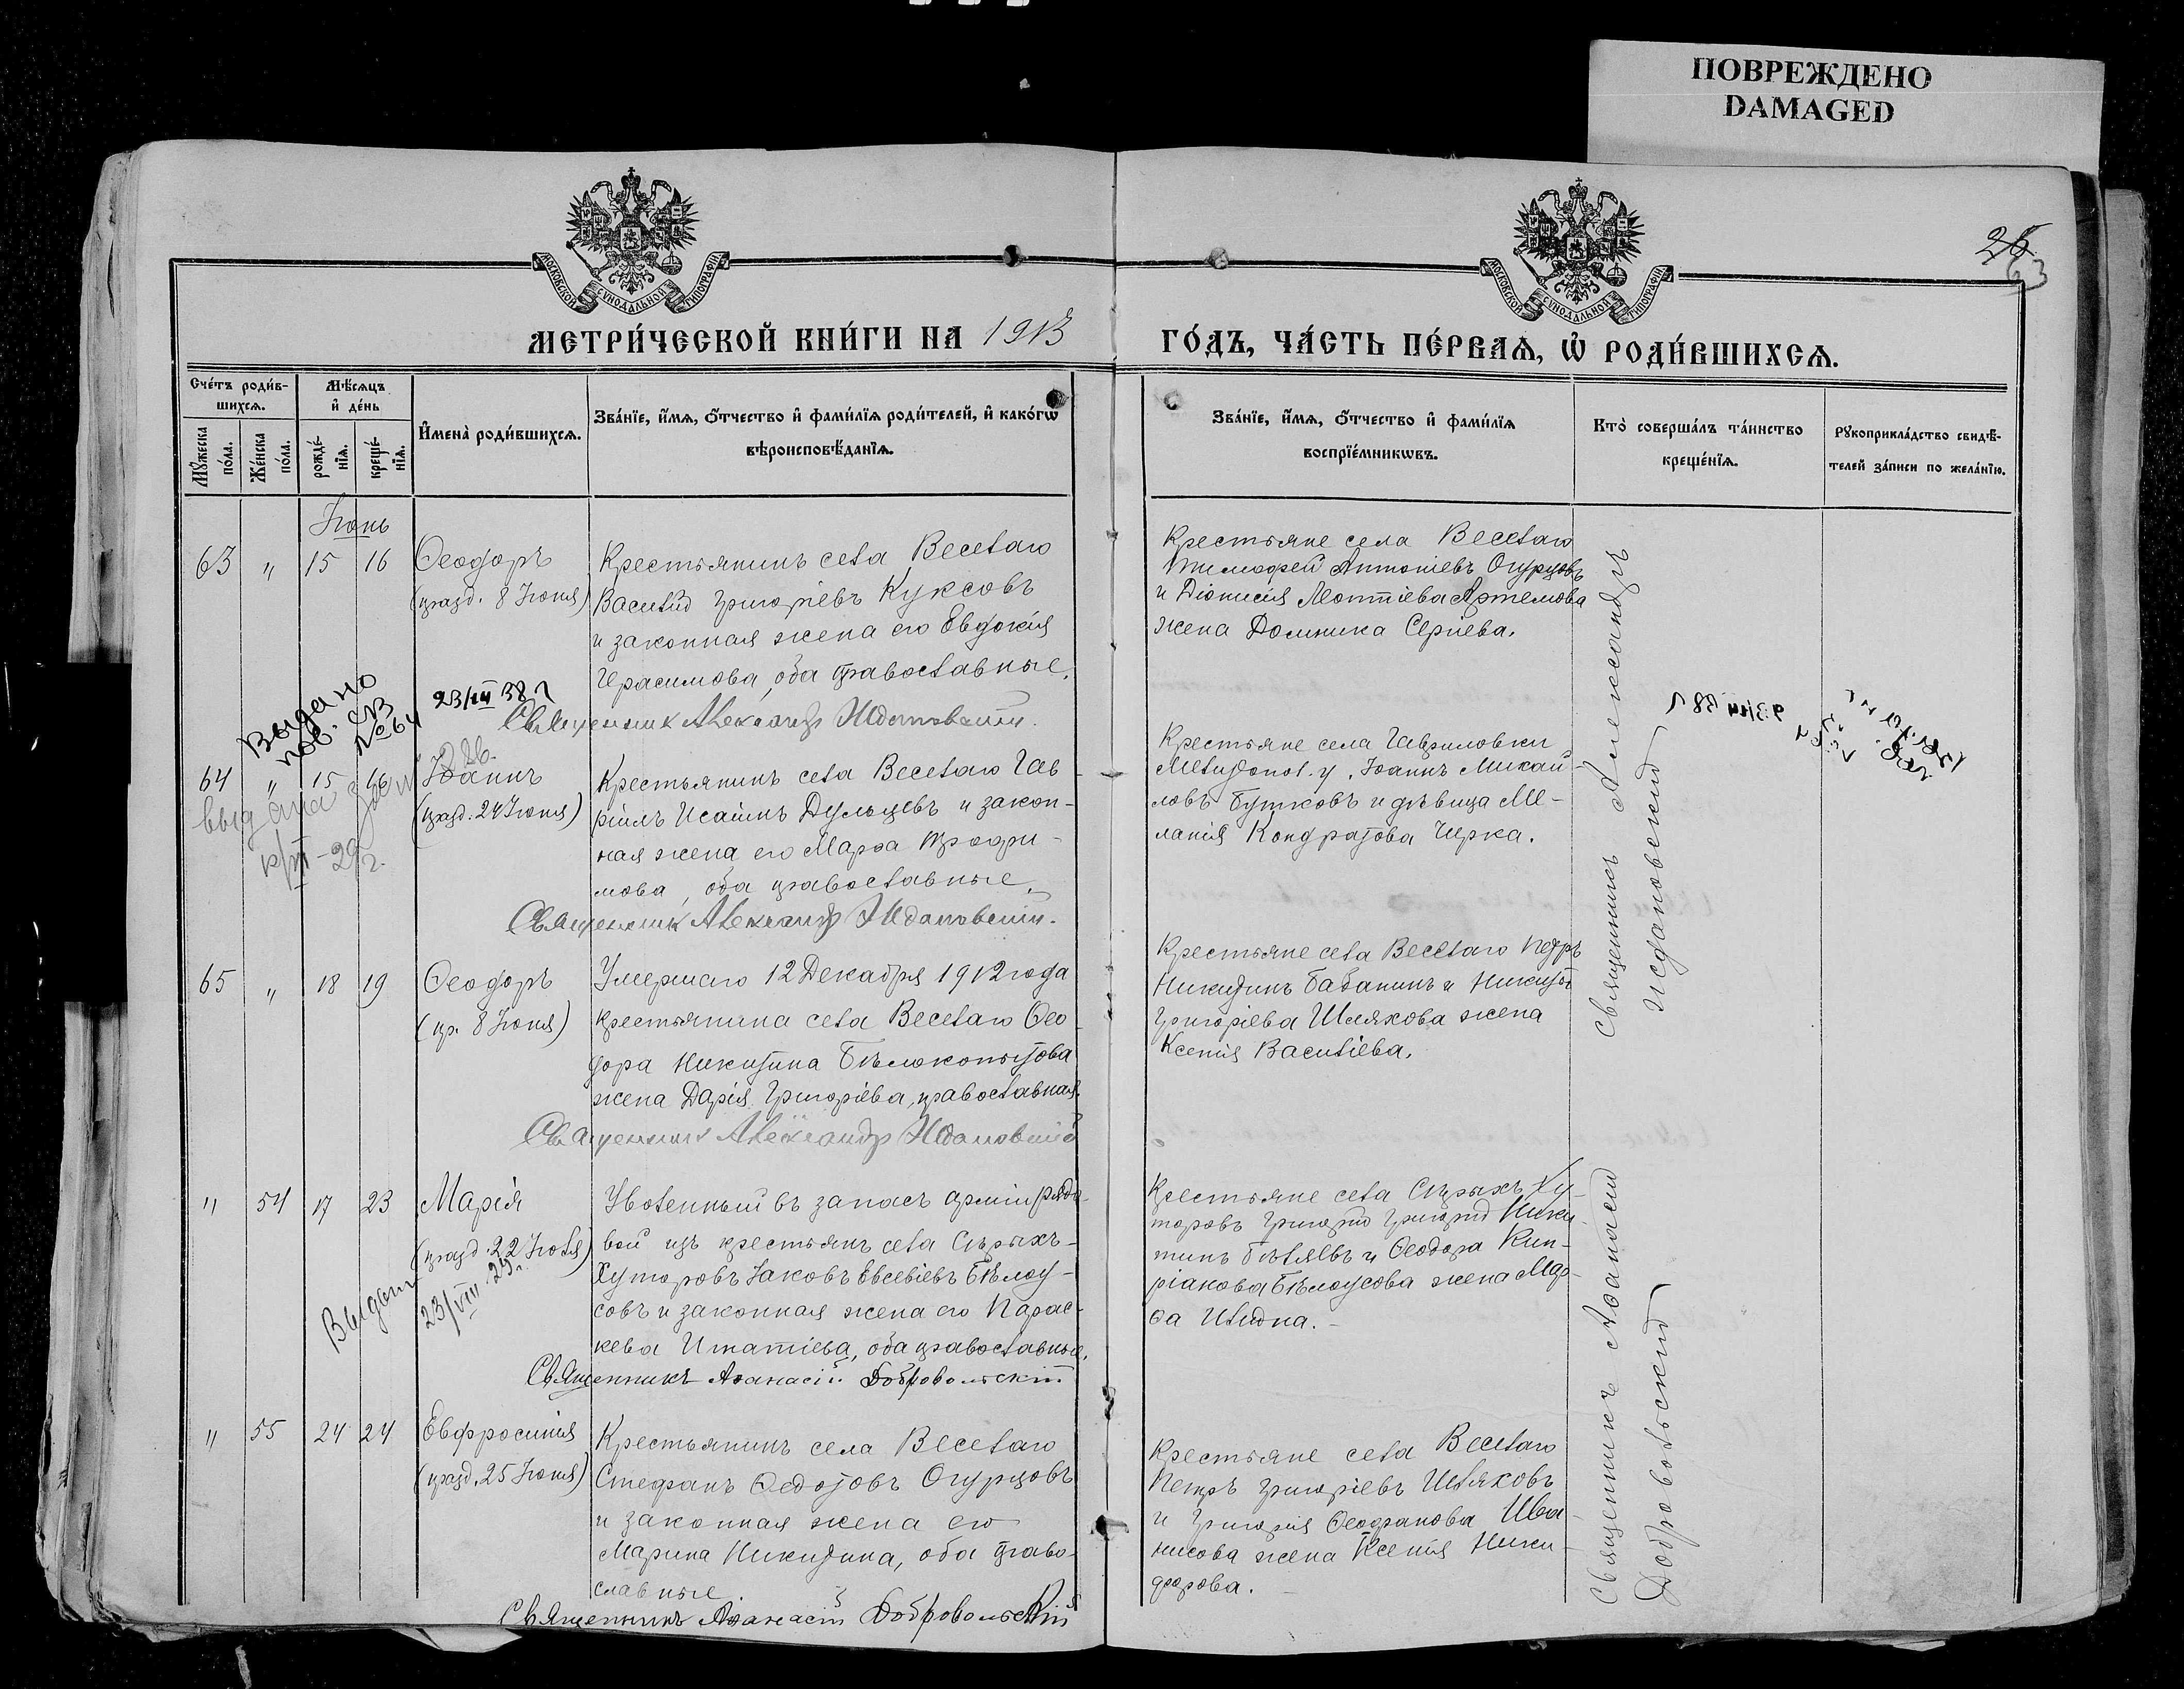 ПОВРЕЖДЕНО
DAMAGED
МОСКОВСКОЙ СѴНОДАЛЬНОЙ ТИПОГРАФІИ
МОСКОВСКОЙ СѴНОДАЛЬНОЙ ТИПОГРАФІИ
26
63
МЕТРИ́ЧЕСКОЙ КНИ́ГИ НА 1913
ГО́ДЪ, ЧА́СТЬ ПЕ́РВАѦ, Ѡ҆ РОДИ́ВШИХСѦ.
Сче́тъ роди́в-
шихсѧ.
Мꙋ́жеска
по́ла.
Же́нска
по́ла.
Мѣ́сѧцъ
и҆ де́нь
рожде́-
нїѧ.
креще́-
нїѧ.
И҆мена̀ роди́вшихсѧ.
Зва́нїе, и҆́мѧ, ѻ҆́тчество и҆ фами́лїѧ роди́телей, и҆ како́гѡ
вѣроисповѣ́данїѧ.
Зва́нїе, и҆́мѧ, ѻ҆́тчество и҆ фами́лїѧ
воспрїе́мникѡвъ.
Кто̀ соверша́лъ та́инство
креще́нїѧ.
Рꙋкоприкла́дство свидѣ́-
телей за́писи по жела́нїю.
Іюнь
63 " 15 16 Ѳеодоръ
(празд. 8 Іюня)
Крестьянинъ села Веселаго
Василій Григоріевъ Куксовъ
и законная жена его Евдокія
Герасимова, оба православные.
Священник Александр Ждановскій.
Крестьяне села Веселаго
Тимофей Антоніевъ Огурцовъ
и Діонисія Леонтіева Артемова
жена Домника Сергіева.
Выдано
пов. св
№ 64
23/III 38 г
64 " 15 16 Іоаннъ
(празд. 24 Іюня)
выдана
29 г.
Крестьянинъ села Веселаго Гав
ріилъ Исаинъ Дульцевъ и закон-
ная жена его Марѳа Трофи-
мова, оба православные.
Священник Александр Ждановскій.
Крестьяне села Гавриловки
Мелитопол. у. Іоаннъ Михаи-
ловъ Бутковъ и дѣвица Ме-
ланія Кондратова Чирка.
Священникъ Александръ
Ждановскій
65 " 18 19 Ѳеодоръ
(пр. 8 Іюня)
Умершаго 12 Декабря 1912 года
крестьянина села Веселаго Ѳео-
дора Никитина Бѣлокопытова
жена Дарія Григоріева, православная.
Священник Александр Ждановскій
Крестьяне села Веселаго Петръ
Никитинъ Бабанинъ и Никиты
Григоріева Шляхова жена
Ксенія Василіева.
" 54 17 23 Марія
(празд. 22 Іюля)
Выдан
23/VIII 29 г.
Уволенный въ запасъ арміи рядо-
вой изъ крестьянъ села Сѣрыхъ-
Хуторовъ Іаковъ Евсевіевъ Бѣлоу-
совъ и законная жена его Парас-
кева Игнатіева, оба православные.
Священникъ Аѳанасій Добровольскій
Крестьяне села Сѣрыхъ Ху-
торовъ Григорій Григорій Ники-
тинъ Бѣляевъ и Ѳеодора Кип-
ріакова Бѣлоусова жена Мар-
ѳа Ильина.
" 55 24 24 Евфросинія
(празд. 25 Іюня)
Крестьянинъ села Веселаго
Стефанъ Ѳедотовъ Огурцовъ
и законная жена его
Марина Никитина, оба право-
славные.
Священникъ Аѳанасій Добровольскій
Крестьяне села Веселаго
Петръ Григоріевъ Шляховъ
и Григорія Ѳеофанова Ива-
нисова жена Ксенія Ники-
форова.
Священникъ Аѳанасій
Добровольскій